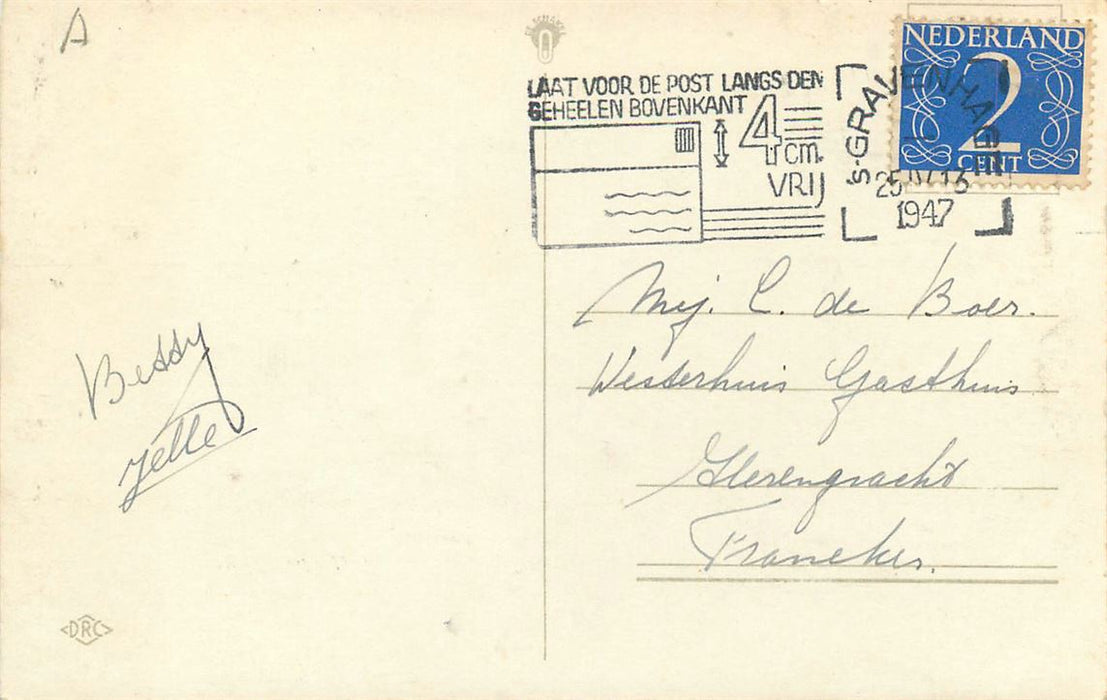 A
LAAT VOOR DE POST LANGS DEN
GEHEELEN BOVENKANT
4 cm.
VRIJ
'S-GRAVENHAGE
1947
NEDERLAND
2
CENT
Mej. C. de Boer.
Westerhuis Gasthuis
Herengracht
Franeker.
Beddy
Jelle
DRC